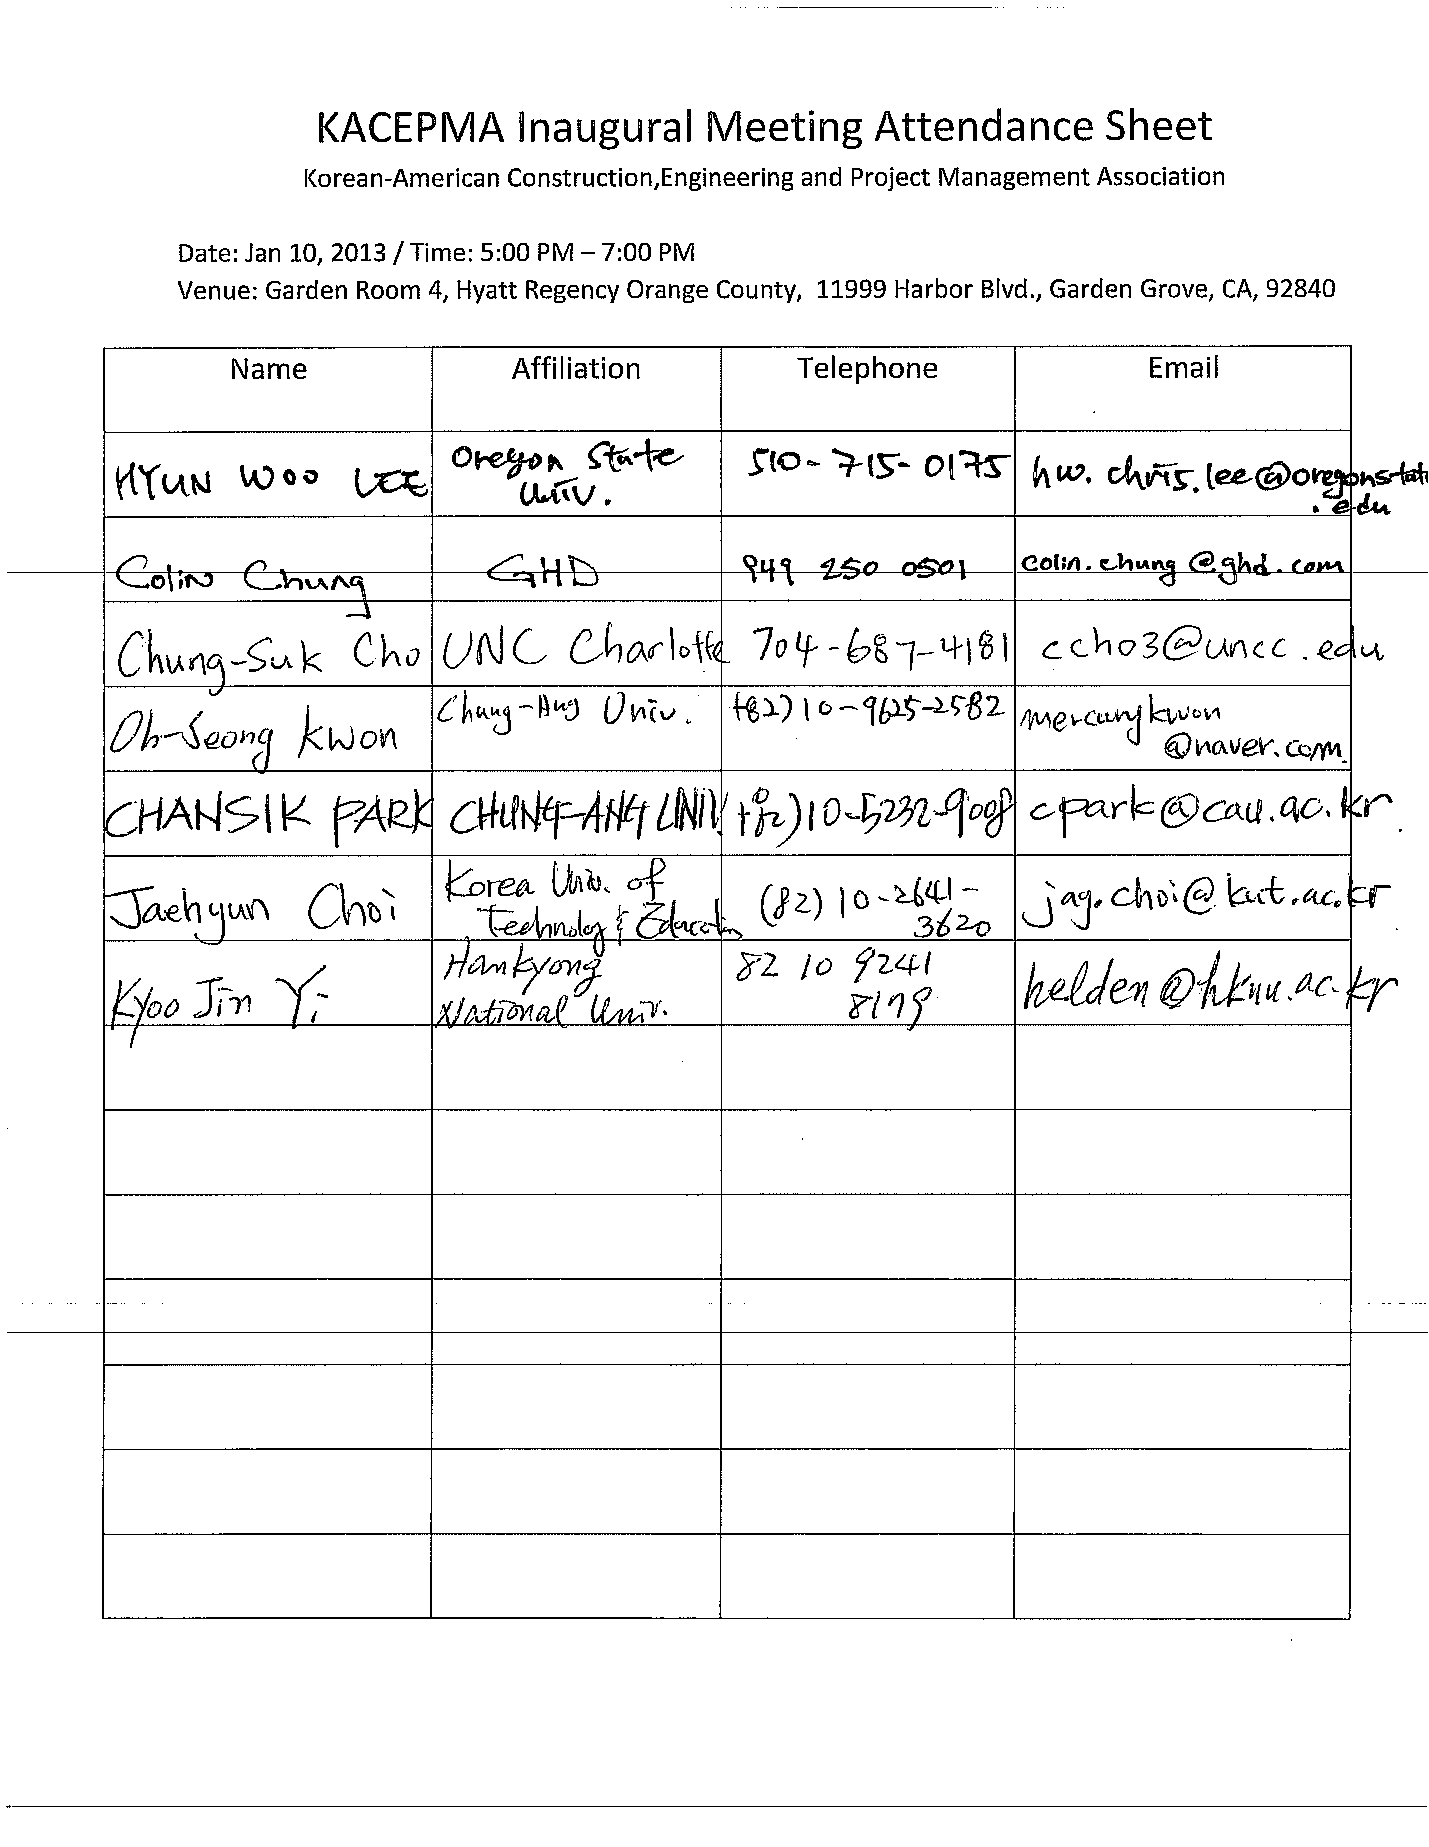 KACEPMA Inaugural Meeting Attendance Sheet
Korean-American Construction,Engineering and Project Management Association
Date: Jan 10, 2013 / Time: 5:00 PM – 7:00 PM
Venue: Garden Room 4, Hyatt Regency Orange County, 11999 Harbor Blvd., Garden Grove, CA, 92840
Name Affiliation Telephone Email
HYUN WOO LEE Oregon State 510-715-0175 hw.chris.lee@oregonstate
Univ. .edu
Colin Chung GHD 949 250 0501 colin.chung@ghd.com
Chung-Suk Cho UNC Charlotte 704-687-4181 ccho3@uncc.edu
Oh-Seong Kwon Chung-Ang Univ. +82)10-9625-2582 mercurykwon
@naver.com
CHANSIK PARK CHUNG-ANG UNIV +82)10-5232-9008 cpark@cau.ac.kr
Jaehyun Choi Korea Univ. of (82) 10-2641-
Technology & Education 3620 jay.choi@kut.ac.kr
Kyoo Jin Yi Hankyong 82 10 9241 helden@hknu.ac.kr
National Univ. 8179